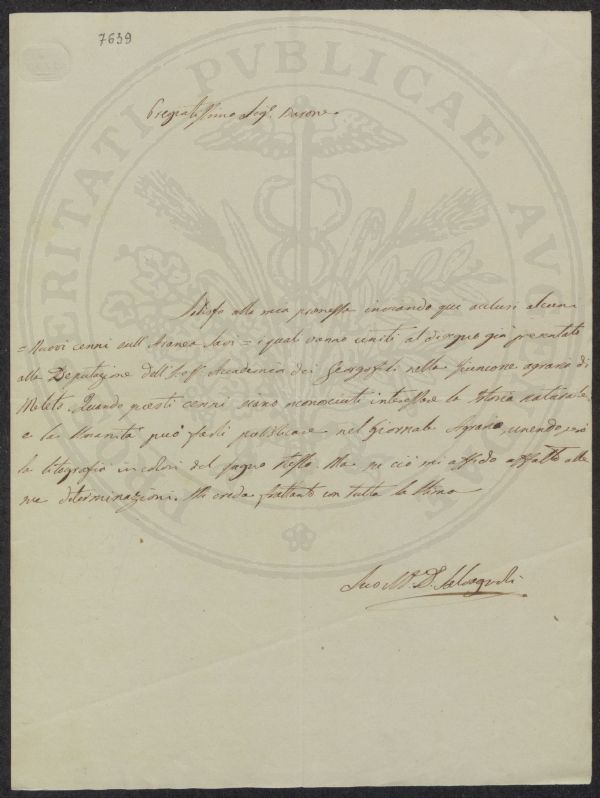 7639
PROSPERITATI PVBLICAE AVGENDAE
Pregiatissimo Sig.r Barone
Sodisfo alla mia promessa inviando qui acclusi alcuni
= Nuovi cenni sull'Aranea Savi = i quali vanno uniti al disegno già presentato
alla Deputazione dell' Accademia dei Georgofili nella riunione agraria di
Meleto. Quando questi cenni siano riconosciuti interessare la storia naturale
e la Umanità può farli pubblicare nel Giornale Agrario, unendo
la litografia in colori del stesso. Ma in ciò mi affido affatto alle
sue determinazioni. Mi creda frattanto con tutta la stima
Suo D. Salvagnoli